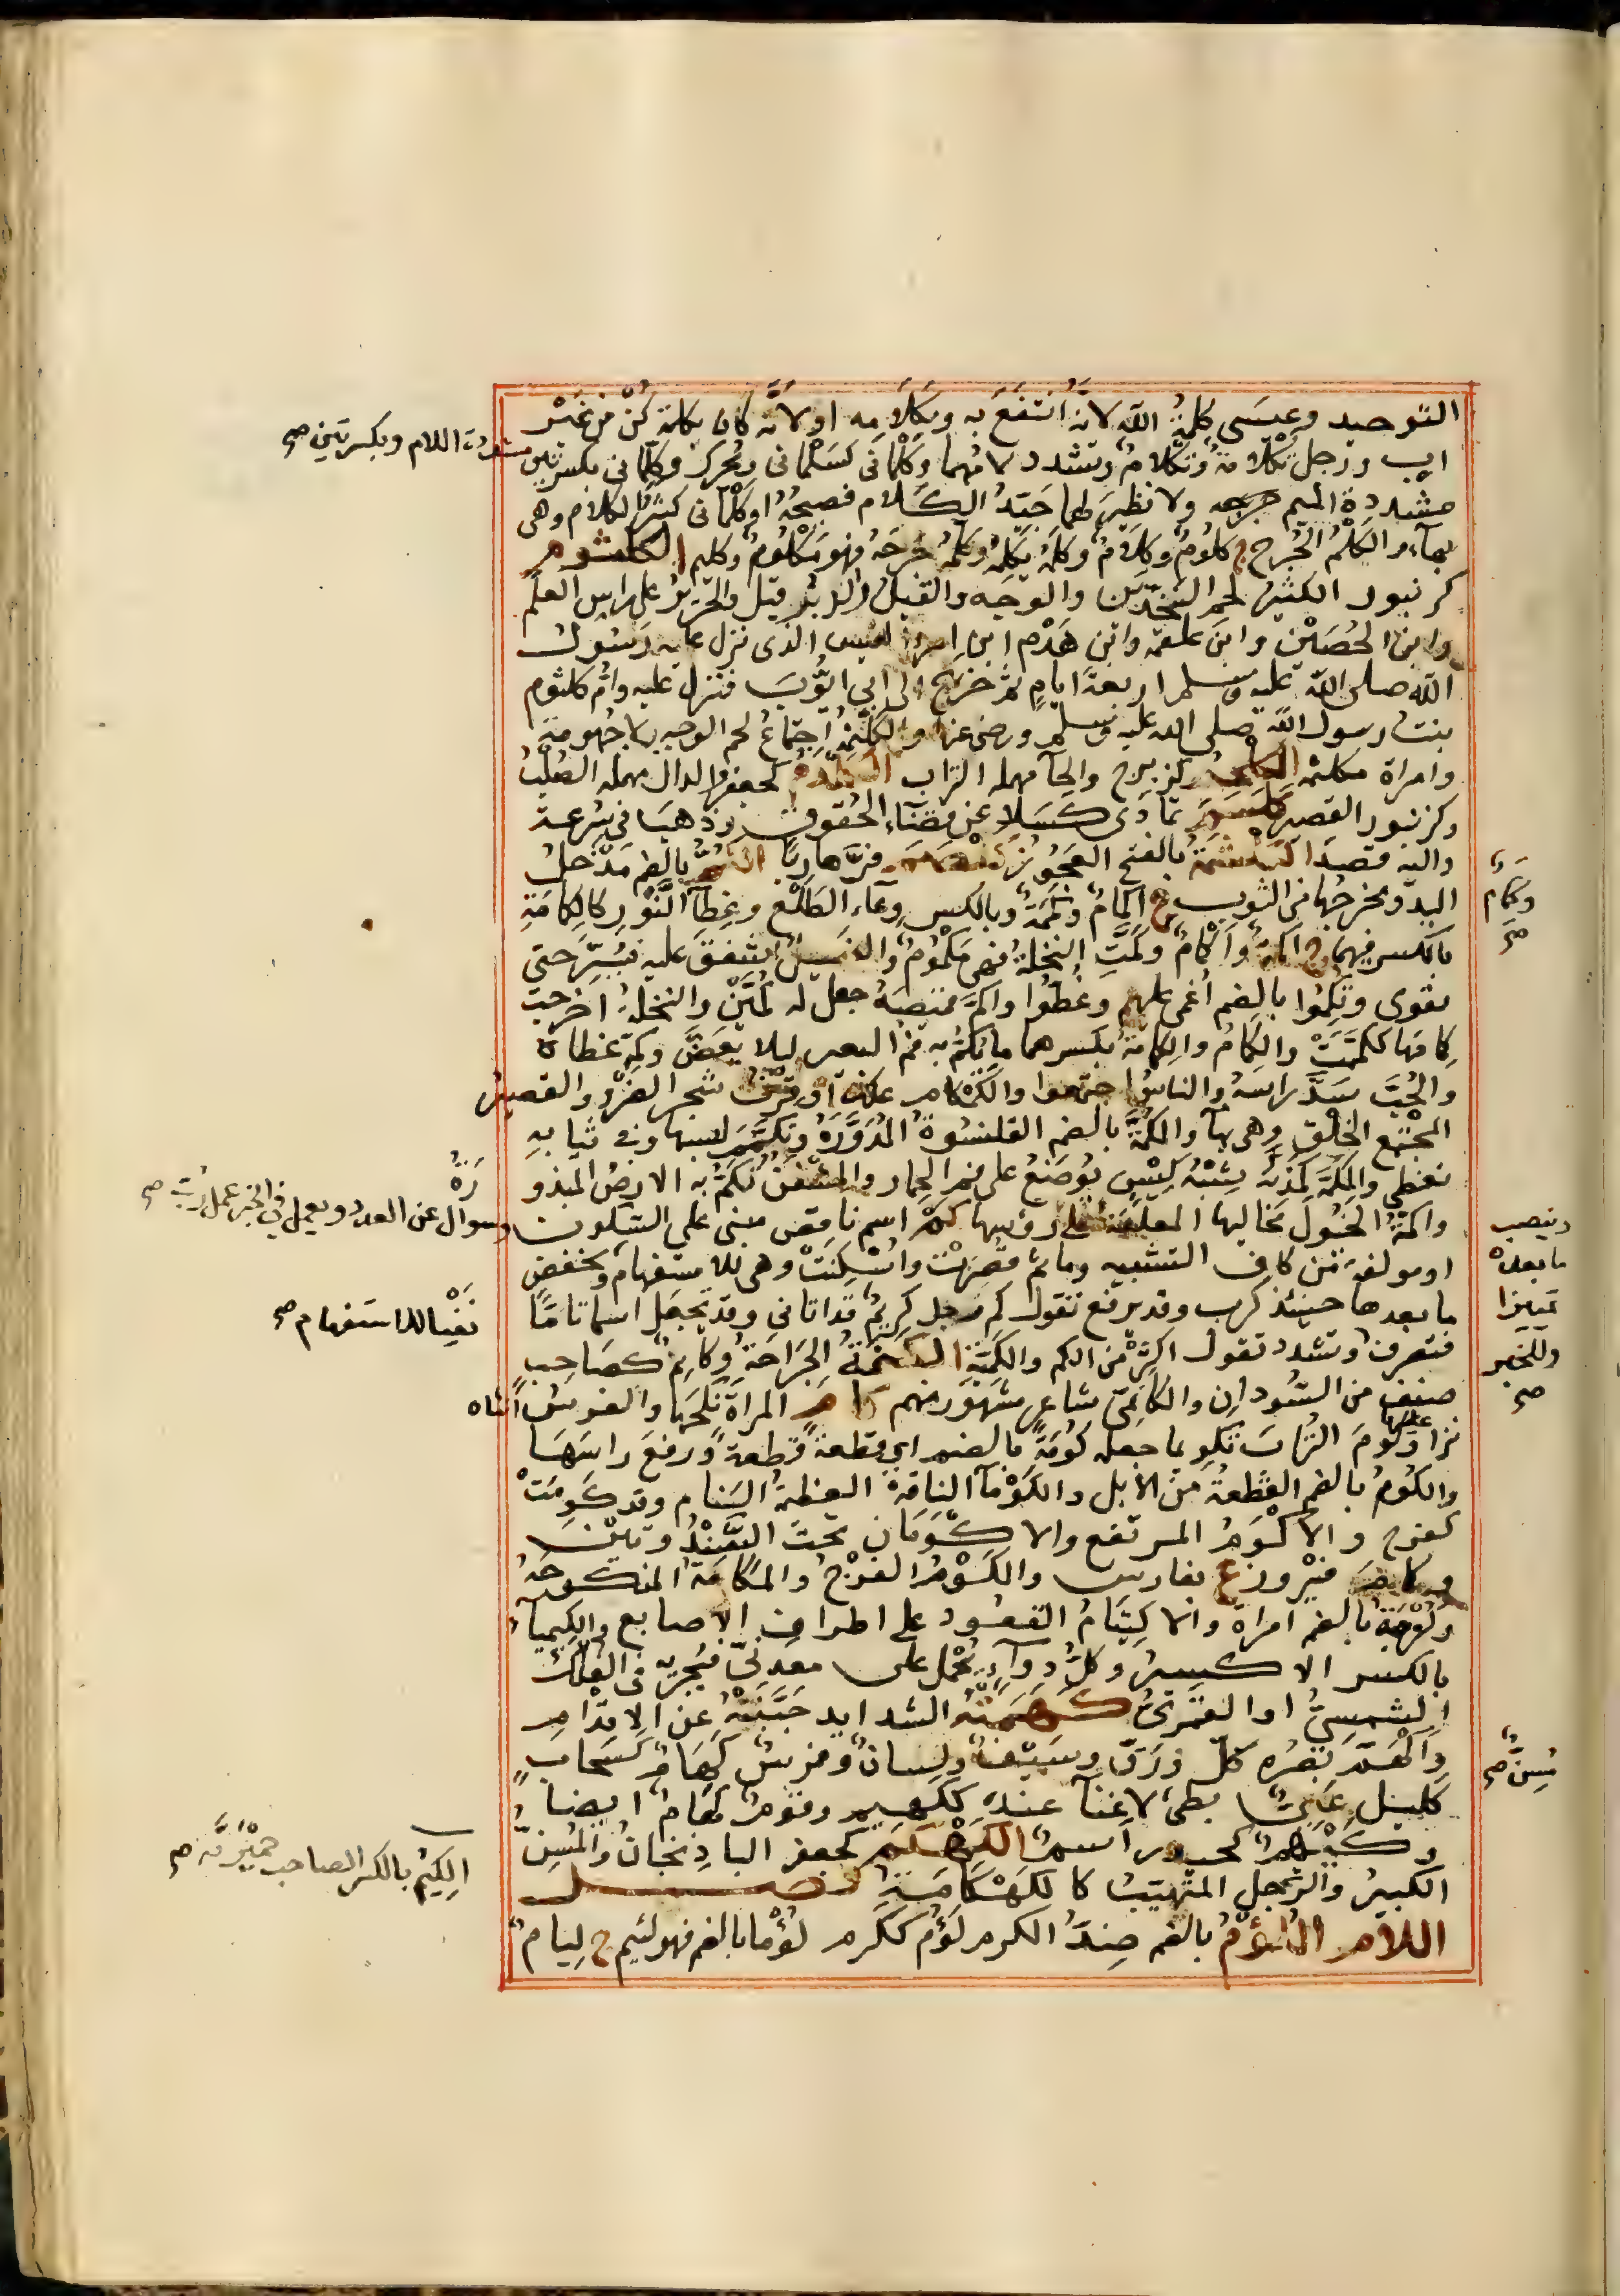 التوحيد وعِيسَى كلمةُ الله لانّهُ انتفعَ به وبكَلَامِه او لانّه كان بكلمة كُنْ مِن غَيْر
ابٍ ورَجل تِكْلَامةٌ وتِكْلامٌ وتشدد لامُهما وكَلْمانى كسَلْمانى ويُحرك وكِلِّمانى بكسرتين
مشددة اللام وبكسرتين صح
مشددة الميم ولا نظيرَ لهما جَيّدُ الكَلام فصيحُهُ او كِلِّمانى كثيرُ الكلام وهى
بهآء والكَلْمُ الجُرح ج كلُومٌ وكِلَامٌ وكلَمهُ يكلِمُه وكَلَّمهُ جَرحَهُ فهو مَكْلُومٌ وكليم الكلثوم
كزنبور الكثيرُ لحم الخَدَّيْنِ والوجه والفيلُ او الزندبيل والحَرير على راس العلَم
وابن الحُصَيْن وابن علقمة وابن هَدْم ابن امرئ القيس الذى نزل عليه رَسُول
الله صلى الله عليه وسلم اربعةَ ايامٍ ثم خرج الى ابى ايُّوبَ فنزل عليه وام كلثوم
بنت رسول الله صلى الله عليه وسلم ورضى عنها والكلثمة اجتماعُ لحم الوجه بلا جُهومة
وامراة مكلثمة الكلحم كزبرج والحآ مهمله التراب الكلدم كجعفر والدال مهمله الصُّلبُ
وكزنبور القصير كلسم تمادى كَسَلا عن قضآءِ الحُقوق وذَهبَ فى سُرعة
واليه قصدَ الكلشمة بالفتح العجُوز كلصم فرّ هاربا الكُمّ بالضم مَدْخلُ
اليد ومخرجُها من الثوب ج اكمامٌ وكِمَمَةٌ وبالكسر وِعآءُ الطَلْع وغِطآءُ النَّوْر كالكِمامةِ
وكِمَامٌ صح
بالكسر فيهما ج اكِمَّةٌ واكْمامٌ وكُمَّتِ النخلةُ فهى مكْمُومٌ والفسيل اشفق عليه فسُتِر حتى
يقوى وتكمّوا بالضم اُغمى عليهم وغُطُّوا واكَمَّ قميصَهُ جعل له كُمَّيْن والنخلةُ اخرجت
كِمامَها ككمَّمَتْ والكِمامُ والكِمامةُ بكسرهما ما يُكَمُّ به فمُ البعير ليلا يَعَضَّ وكمّهُ غطاهُ
والحُبَّ سَدَّ راسهُ والناسُ اجتمعوا والكمكام علك او قرفُ شجر الضِّرْو والقصيرُ
المجتمع الخَلْق وهى بهآ والكُمَّةُ بالضم القلنسُوةُ المُدَوَّرةُ وتكمكم لبسها وفى ثيابه
تغطى والمِكَمُّ كمِذَبّة شِبْهُ كِيْسٍ يُوضَعُ على فم الحمار والمِشفَنُ تُكَمُّ به الارضُ المبذورَةُ
واكمّةُ الخُيُول مخاليها المعلقةُ على رؤسها كم اسم ناقص مبنى على السكون
وسوال عن العدد ويعمل فى الخبر عمل رُبّ صح
او مولفة من كاف التشبيه وما ثم قُصِرَتْ واُسْكِنَتْ وهى للاستفهام ويخفض
وينصب ما بعده تمييزا وللخبر صح
ما بعدها حينئذ كرب وقد يرفع تقول كم رجل كريمٌ قد اتانى وقد تُجعل اسما تامًّا
نَفْيا للاستفهام صح
فتصرف وتشدد تقول اكثِرْ من الكمّ والكَمِيّةِ الكلمة الجِرَاحَةُ وكانِمٌ كصَاحِبٍ
صنفٌ من السُّودان والكانِمىّ شاعر مشهور منهم كام المراةَ نكحها والفرسُ انثاه
نزا عليها وكوّمَ الترابَ تكويما جعله كُومةً بالضم اى قطعةً قطعةً ورفعَ راسَهَا
والكُومُ بالضم القِطعةُ من الابل والكَوْمآ الناقة العظيمةُ السَنام وقد كَوِمَتْ
كفرح والاكْوَمُ المرتفع والاكْوَمَان تحتَ الثَّنْدُوَتَيْن
وكام فَيْرُوز ع بفارس والكَوْمُ الفَرْجُ والمُكامَةُ المنكُوحَةُ
وكُومَةُ بالضم امراة والاكتيامُ القعُود على اطراف الاصابع والكيميآءُ
بالكسر الاكسيرُ وكل دِوآءٍ يُحْمَل على معدنىّ فيُجريه فى الفلك
الشمسىّ او القمرىّ كهمَتْهُ الشدايد جَبَّنَتْهُ عن الاقدام
واكْهَمَ بصرُه كلّ ورَقّ وسَيفٌ ولِسانٌ وفرسٌ كَهَامٌ كسَحابٍ
كليل عَيِىّ بطى لا غنآ عنده ككهيم وقومٌ كهامٌ ايضا
مُسِنٌّ صح
وكَيْهَمٌ كحيدر اسم الكَهْكَم كجعفر الباذنجانُ والمُسِنّ
الِكيمُ بالكسر الصاحب حِمْيَرِيَّة صح
الكبيرُ والرجل المتهيّبُ كالكَهْكَامَةِ فصل
اللام اللُؤْمُ بالضم ضِدُّ الكرم لَؤُم ككَرم لُؤْمًا بالضم فهو لئيم ج لِيامٌ